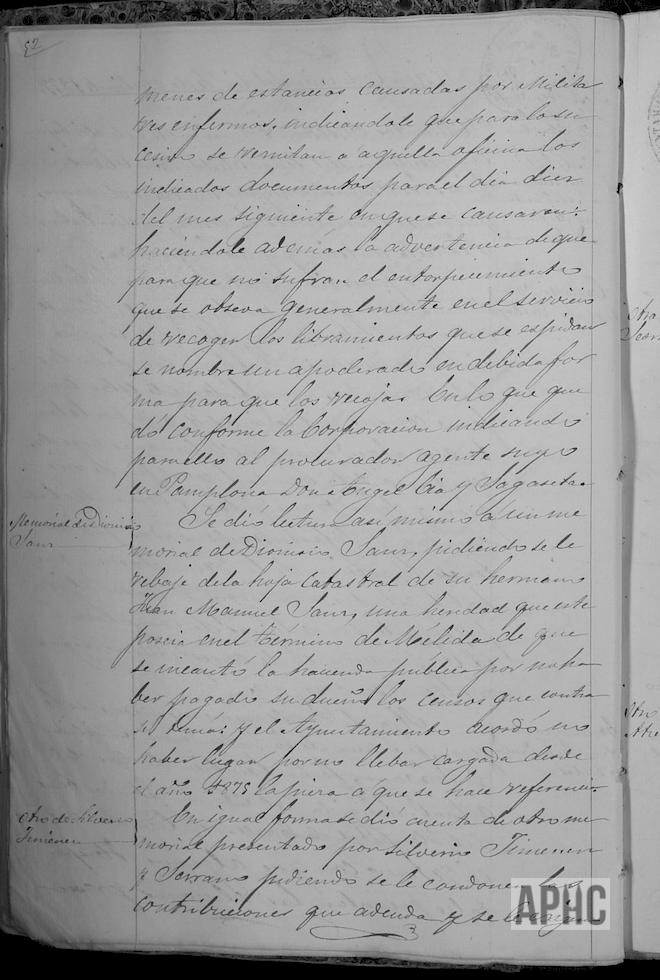 52
menes de estancias causadas por Milita
res enfermos, indicandole que para lo su
cesivo se remitan a aquella oficina los
indicados documentos para el dia diez
del mes siguiente en que se causaren:
haciendole ademas la advertencia de que
para que no sufran el entorpecimiento
que se observa generalmente en el servicio
de recoger los libramientos que se espidan
se nombre un apoderado en debida for
ma para que los recoja. En lo que que
dó conforme la Corporacion indicando
para ello al procurador agente suyo
en Pamplona Don Angel Cia y Sagaseta.
Memorial de Dionisio
Sanz
Se dió lectura asi mismo a un me
morial de Dionisio Sanz, pidiendo se le
rebaje de la hoja catastral de su hermano
Juan Manuel Sanz, una heredad que este
poseia en el término de Mélida de que
se incautó la hacienda pública por no ha
ber pagado su dueño los censos que contra
si tenia: y el Ayuntamiento acordó no
haber lugar por no llebar cargada desde
el año 1875 la pieza a que se hace referencia.
Otro de Silverio
Jimenez
En igual forma se dió cuenta de otro me
morial presentado por Silverio Jimenez
y Serrano pidiendo se le condonen las
contribuciones que adeuda y se le
APHC
Otro
Otro